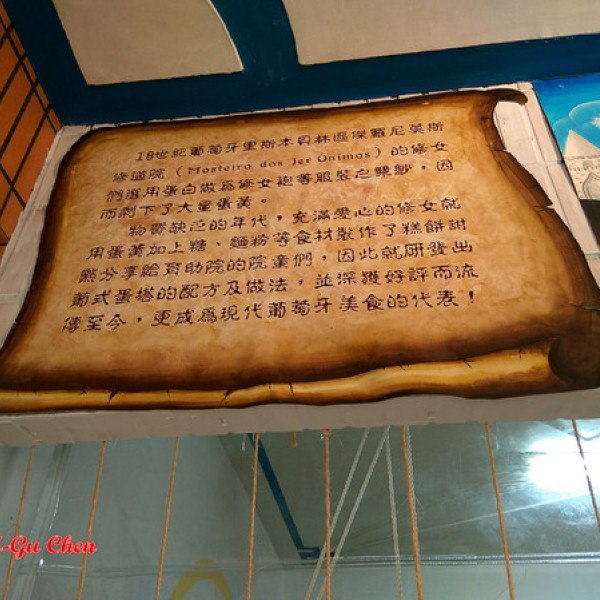 18世紀葡萄牙里斯本貝林區傑羅尼莫斯
修道院 (Mosteiro dos Jer Ónimos) 的修女
們選用蛋白做為修女袍等服裝之漿紗，因
而剩下了大量蛋黃。
物資缺乏的年代，充滿愛心的修女就
用蛋黃加上糖、麵粉等食材製作了糕餅甜
點分享給育幼院的院童們，因此就研發出
葡式蛋塔的配方及做法，並深獲好評而流
傳至今，更成為現代葡萄牙美食的代表！
-Gu Chen